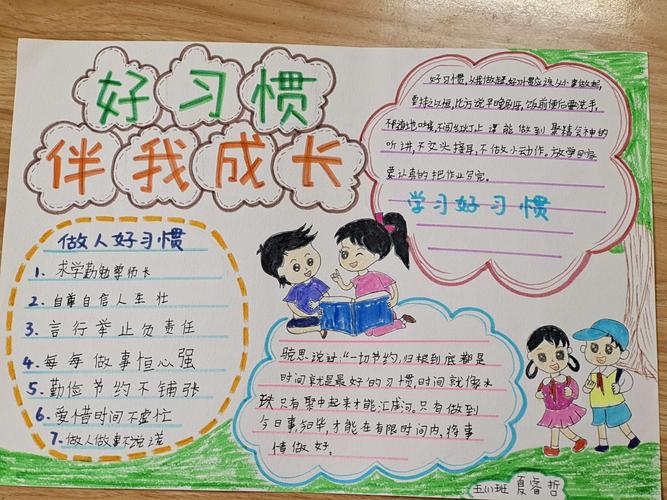 好习惯
伴我成长
做人好习惯
1、求学勤勉尊师长
2、自尊自信人生壮
3、言行举止负责任
4、每每做事恒心强
5、勤俭节约不铺张
6、爱惜时间不虚忙
7、做人做事不说谎
好习惯,从我做起,好习惯应该从小事做起,
早晚刷牙,饭前便后要洗手,
不随地吐痰,不闯红灯,上课能做到聚精会神的
听讲,不交头接耳,不做小动作。放学回家
要认真的把作业写完。
学习好习惯
说过:“一切节约,归根到底都是
时间就是最好的习惯,时间就像水
珠,只有聚中起来才能汇成河。只有做到
今日事,今日毕,才能在有限时间内,将事
情做好。
五(1)班 夏睿哲